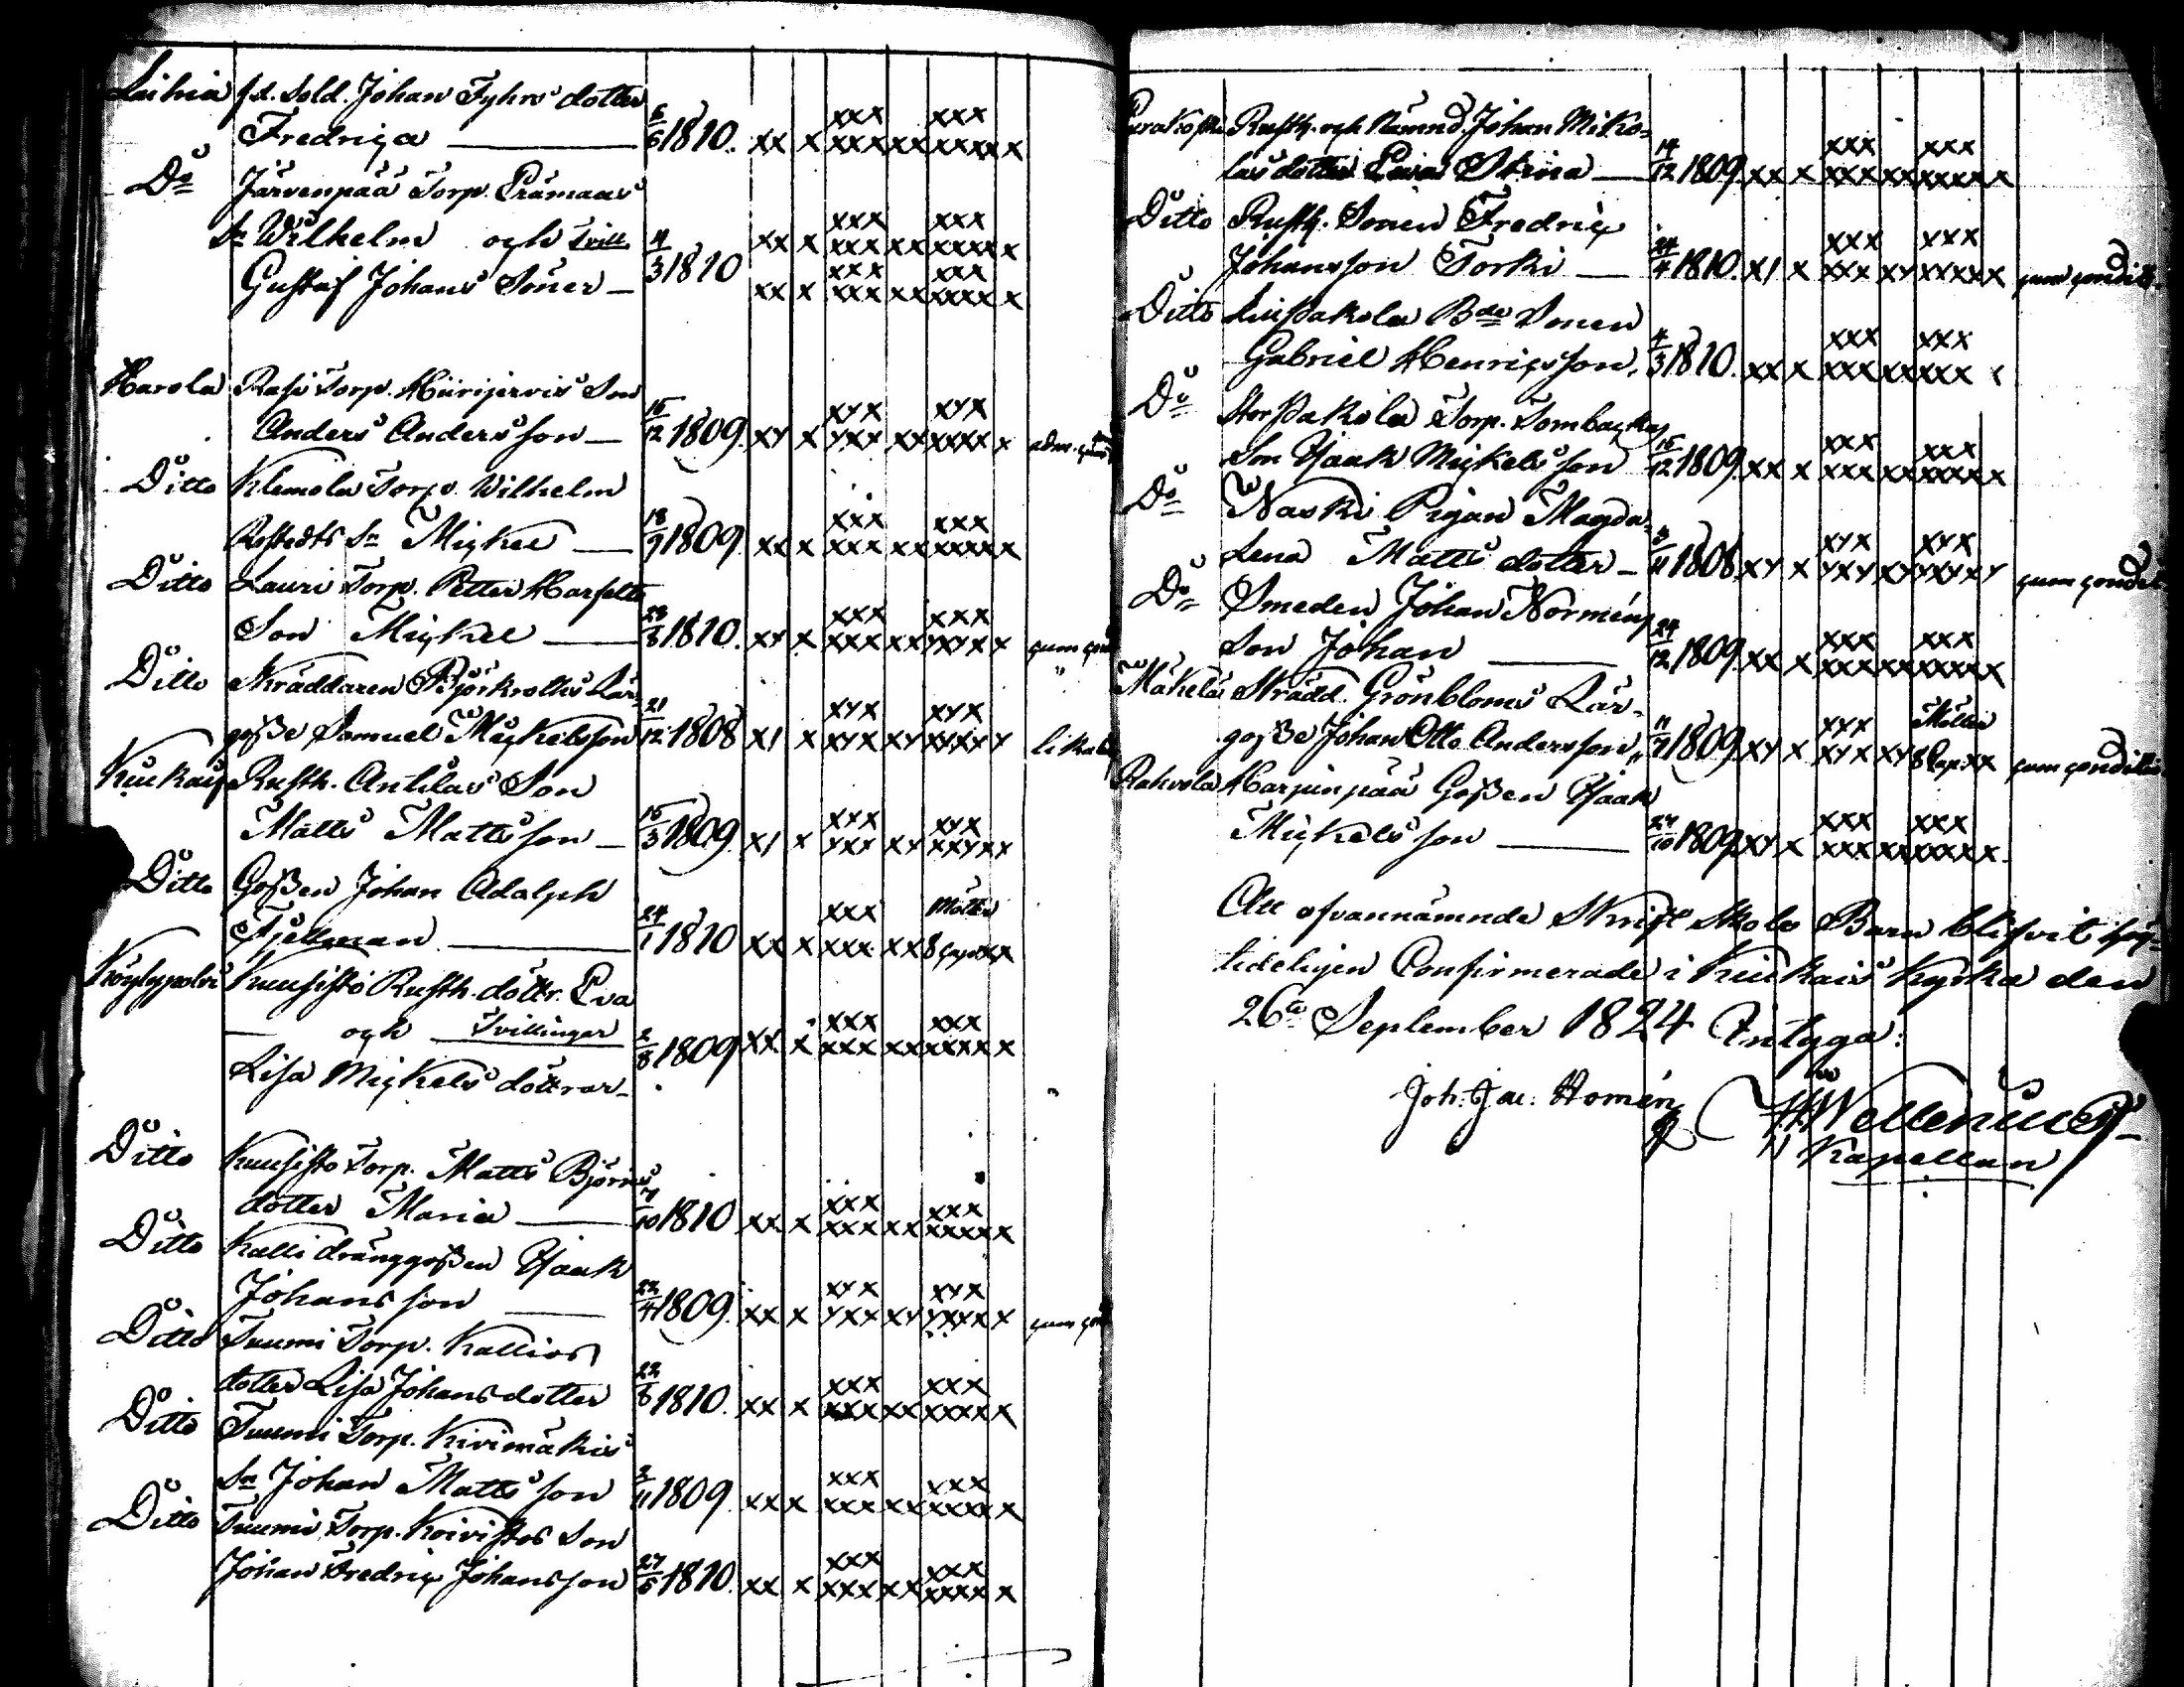 Laihia f.d. Sold. Johan Fyhrs dotter
Fredriça 6/6 1810. xx x xxx xxx xx xxx xxxxx x
Do Järvenpää Torp. Prämaas
Sn Wilhelm och Tvill. xx x xxx xxx xx xxx xxxx x
Gustaf Johans Söner 4/3 1810 xx x xxx xxx xx xxx xxxx x
Harola Rasi Torp. Hiirijervis Son
Anders Andersson 16/12 1809. xy x xyx yxx xx xyx xxxx x adm.
Ditto Klemola Torp. Wilhelm
Rostedts Sn Miçkel 18/9 1809 xx x xxx xxx xx xxx xxxx x
Ditto Lauri Torp. Petter
Son Miçkel 23/8 1810. xy x xxx xxx xx xxx xxyx x çum
Ditto Skräddaren Björkroths Lär-
goße Samuel Miçkelsson 21/12 1808 x1 x xyx xyx xy xyx xyxy y lika
Kiukais Rusth. Anttilas Son
Matts Matts son 15/3 1809. x1 x xyx yxx xy xyx xxyx x
Ditto Goßen Johan Adolph
Fjellman 24/1 1810 xx x xxx xxx xx Möller 8 Cap. xx
Köylypolvi Kuusisto Rusth. döttr. Eva
och Tvillingar 2/8 1809 xx x xxx xxx xx xxx xxxx x
Lisa Miçkels döttrar
Ditto Kuusisto Torp. Matts Björns
dotter Maria 7/10 1810 xx x xxx xxx xx xxx xxxx x
Ditto Kalli dränggoßen Isaak
Johansson 22/4 1809. xx x xyx yxx xy xyx yxyx x çum
Ditto Tuumi Torp. Kallios
dotter Lisa Johansdotter 22/8 1810. xx x xxx xxx xx xxx xxxx x
Ditto Tuumi Torp. Kivimäkis
Sn Johan Matts son 3/11 1809. xx x xxx xxx xx xxx xxxx x
Ditto Tuumi Torp. Koivistos Son
Johan Fredriç Johansson 27/5 1810. xx x xxx xxx xx xxx xxxx x
Rusth. och Nämnd. Johan Miko-
las dotter Stina 14/12 1809. xx x xxx xxx xx xxx xxxx x
Ditto Rusth. Sonen Fredriç
Johansson Torki 24/4 1810. x1 x xxx xyx xy xyx xyxx x çum çonditi.
Ditto Bde Sonen
Gabriel Henriçsson, 4/3 1810. xx x xxx xxx xx xxx xxx x
Do Storpakola Torp. Tombaçkas
Son Isaak Miçkels son 15/12 1809. xx x xxx xxx xx xxx xxxx x
Do Naski Pigan Magda-
lena Matts dotter 3/11 1808 xy x xyx yxy xy xyx yxyx y çum çondit
Do Smeden Johan Norméns
Son Johan 24/12 1809. xx x xxx xxx xx xxx xxxx x
Mäkelä Skrädd. Grönbloms Lär-
goße Johan Otto Andersson 11/7 1809. xy x xyx xyx xy Möller 8 Cap. xx çum çonditio
Rahvola Harjunpää Goßen Isaak
Miçkels son 24/10 1809. xy x xxx xxx xx xxx xxxx x.
Att ofvannämnde Skrift Skole Barn blifvit hög-
tideligen Confirmerade i Kiukais Kyrka den
26te September 1824 Intyga:
Joh. Jac. Homén
Wellenius
Kapellan